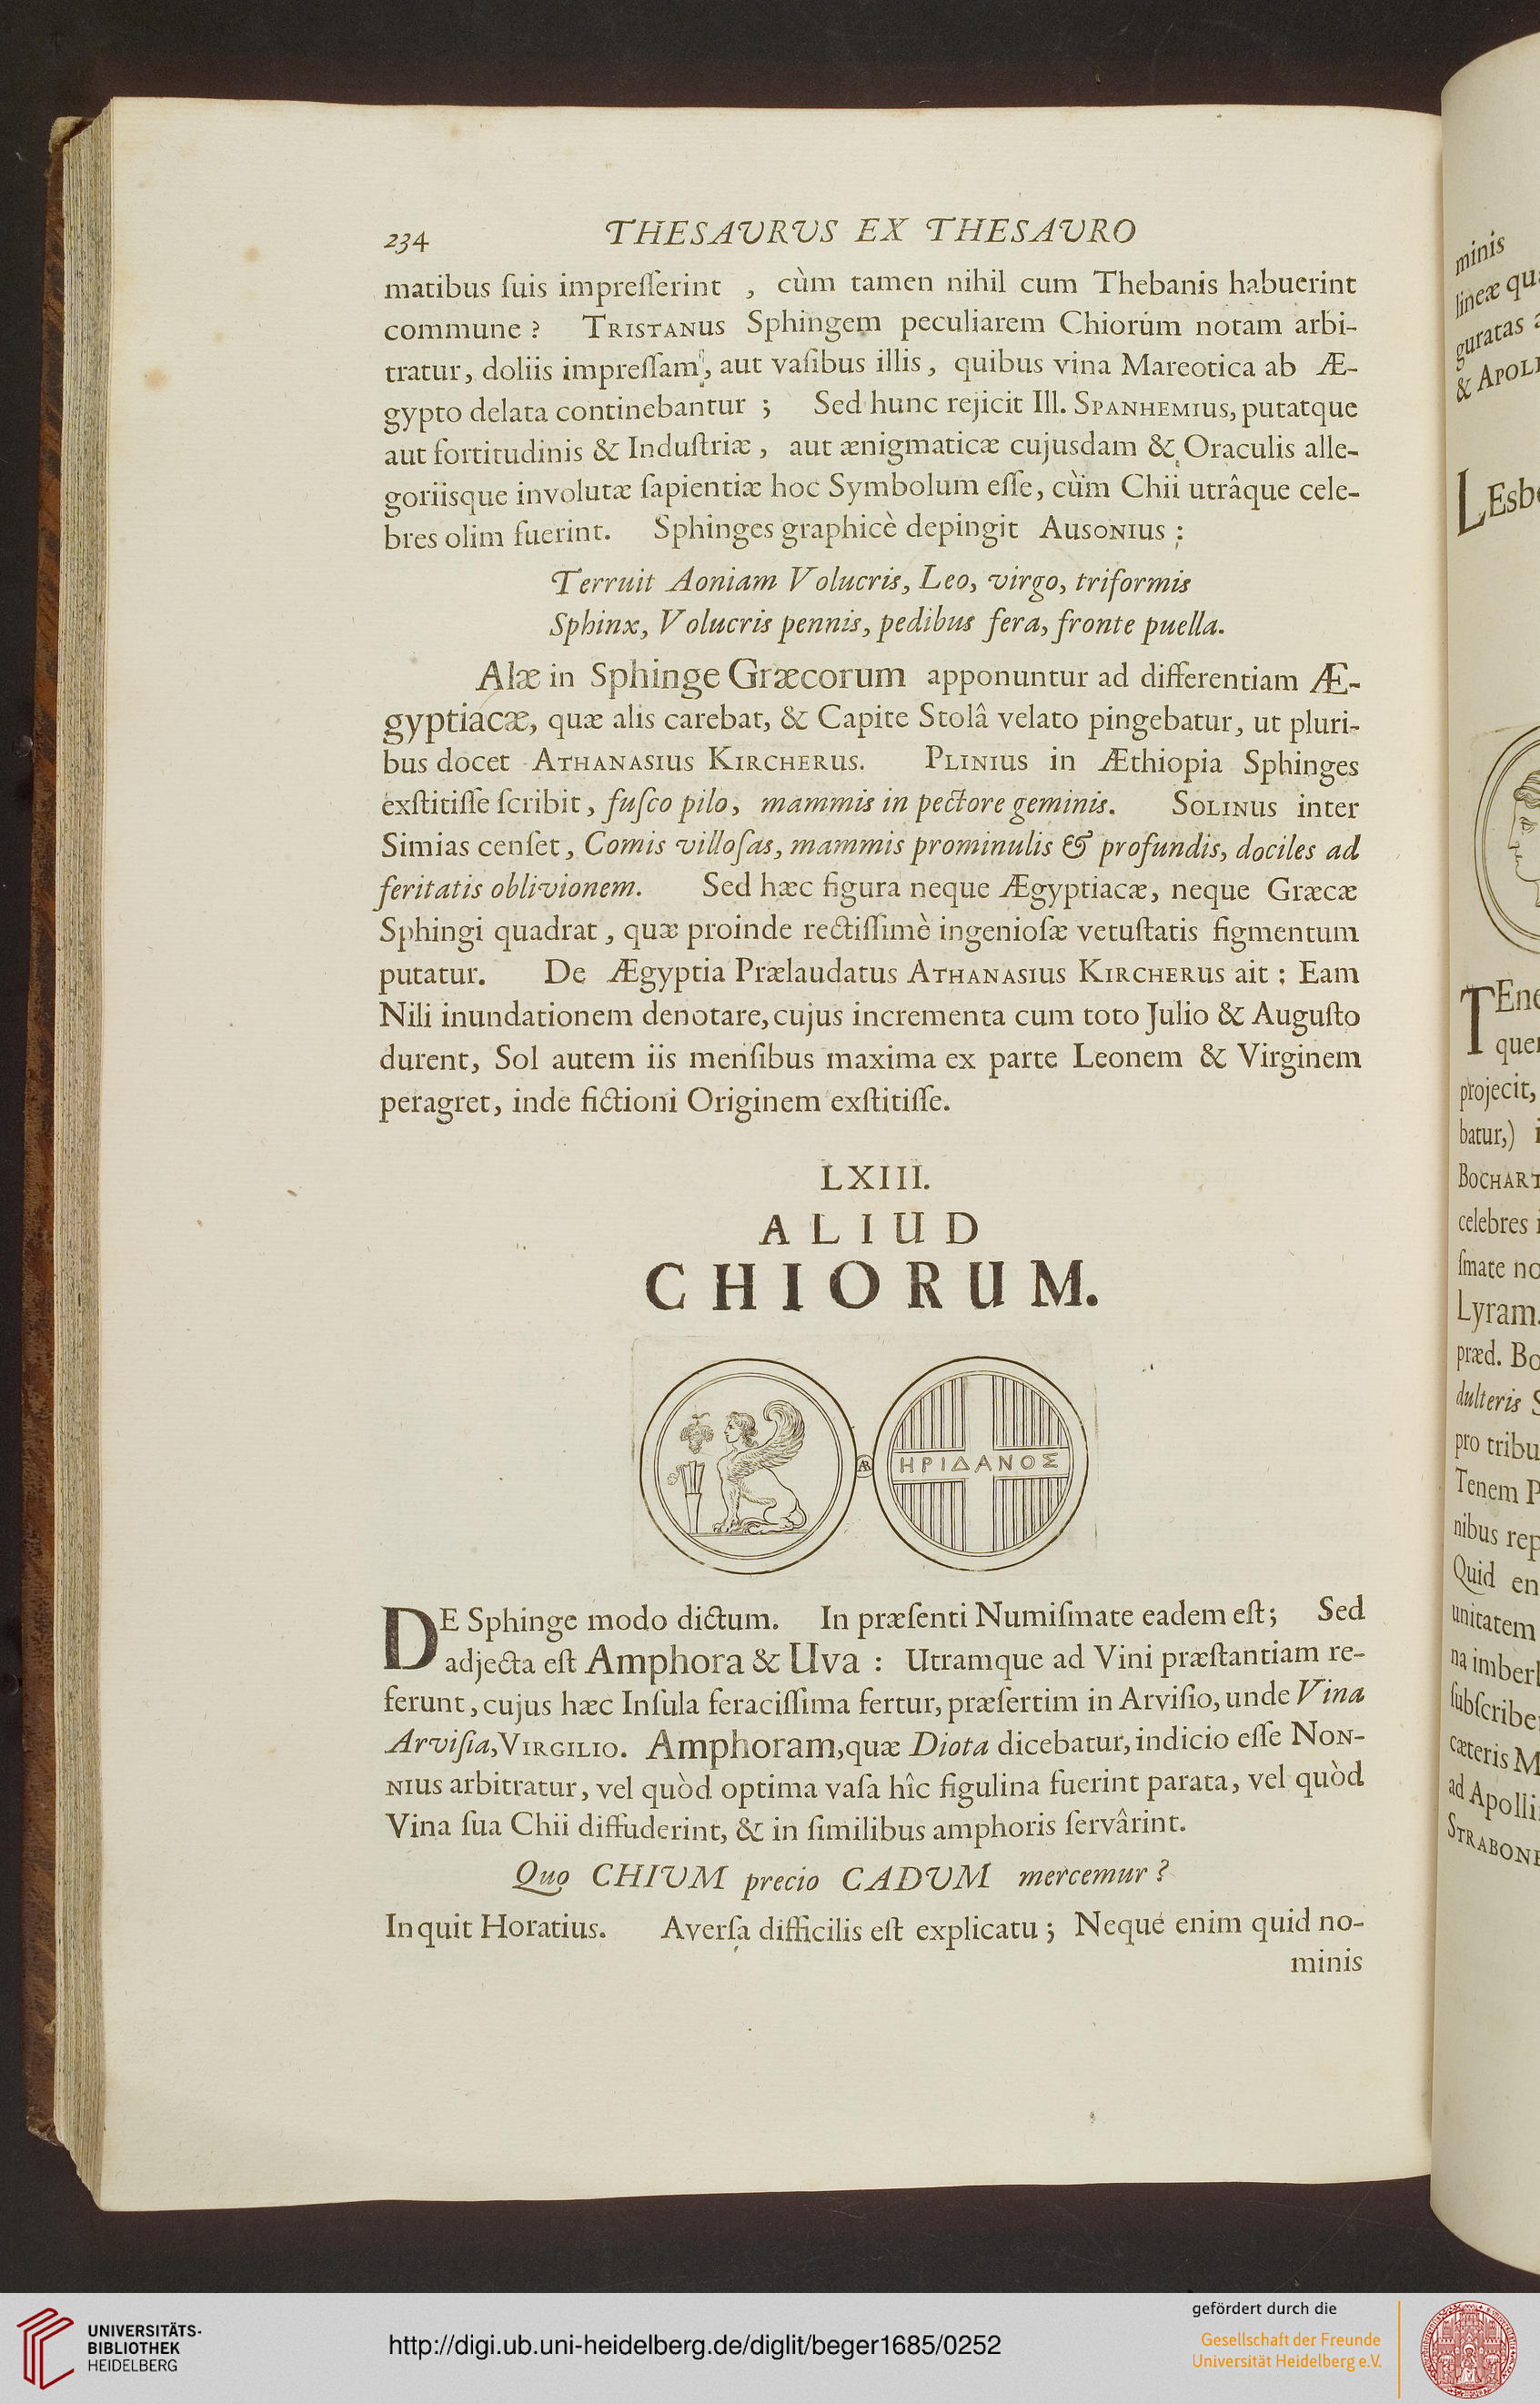 234 THESAVRVS EX THESAVRO
matibus ſuis impreſſerint , cùm tamen nihil cum Thebanis habuerint
commune ? TRISTANUS Sphingem peculiarem Chiorúm notam arbi-
tratur, doliis impreſſam, aut vaſibus illis, quibus vina Mareotica ab Æ-
gypto delata continebantur ; Sed hunc rejicit Ill. SPANHEMIUS, putatque
aut fortitudinis & Induſtriæ, aut ænigmaticæ cujusdam & Oraculis alle-
goriisque involutæ ſapientiæ hoc Symbolum eſſe, cùm Chii utrâque cele-
bres olim fuerint. Sphinges graphicè depingit AUSONIUS ;
Terruit Aoniam Volucris, Leo, virgo, triformis
Sphinx, Volucris pennis, pedibus fera, fronte puella.
Alæ in Sphinge Græcorum apponuntur ad differentiam Æ-
gyptiacæ, quæ alis carebat, & Capite Stolâ velato pingebatur, ut pluri-
bus docet ATHANASIUS KIRCHERUS. PLINIUS in Æthiopia Sphinges
exſtitiſſe ſcribit, fuſco pilo, mammis in pectore geminis. SOLINUS inter
Simias cenſet, Comis villoſas, mammis prominulis & profundis, dociles ad
feritatis oblivionem. Sed hæc figura neque Ægyptiacæ, neque Græcæ
Sphingi quadrat, quæ proinde rectiſſimè ingenioſæ vetuſtatis figmentum
putatur. De Ægyptia Prælaudatus ATHANASIUS KIRCHERUS ait : Eam
Nili inundationem denotare, cujus incrementa cum toto Julio & Auguſto
durent, Sol autem iis menſibus maxima ex parte Leonem & Virginem
peragret, inde fictioni Originem exſtitiſſe.
LXIII.
ALIUD
CHIORUM.
ÆR
ΗΡΙΔΑΝΟΣ
DE Sphinge modo dictum. In præſenti Numiſmate eadem eſt; Sed
adjecta eſt Amphora & Uva : Utramque ad Vini præſtantiam re-
ferunt, cujus hæc Inſula feraciſſima fertur, præſertim in Arviſio, unde Vina
Arviſia, VIRGILIO. Amphoram, quæ Diota dicebatur, indicio eſſe NON-
NIUS arbitratur, vel quòd optima vaſa hîc figulina fuerint parata, vel quòd
Vina ſua Chii diffuderint, & in ſimilibus amphoris ſervârint.
Quo CHIVM precio CADVM mercemur ?
Inquit Horatius. Averſa difficilis eſt explicatu ; Neque enim quid no-
minis
minis
lineæ qu
guratas
& APOL
LEsb
TEne
que
projecit,
batur,)
BOCHART
celebres
ſmate no
Lyram.
præd. Bo
dulteris S
pro tribu
Tenem P
nibus rep
Quid en
unitatem
na imberb
ſubſcribe
cæteris M
ad Apolli
STRABONE
UNIVERSITÄTS-
BIBLIOTHEK
HEIDELBERG
http://digi.ub.uni-heidelberg.de/diglit/beger1685/0252
gefördert durch die
Gesellschaft der Freunde
Universität Heidelberg e.V.